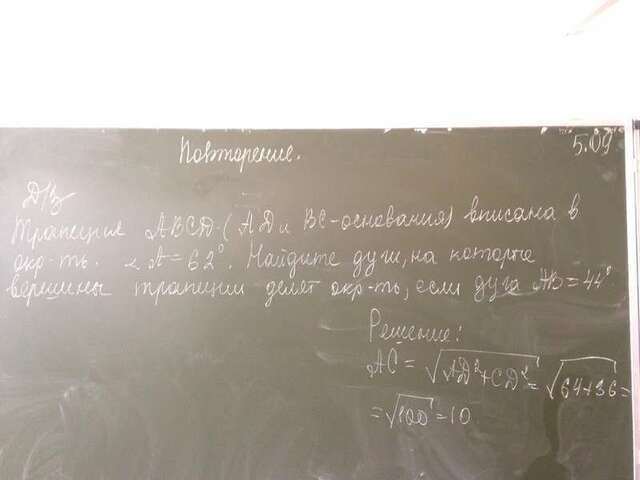 Повторение.
5.09
Д/з
Трапеция ABCD (AD и BC-основания) вписана в
окр-ть. ∠A = 62°. Найдите дуги, на которые
вершины трапеции делят окр-ть, если дуга AB = 44°
Решение:
AC = √AD²+CD² = √64+36 =
= √100 = 10